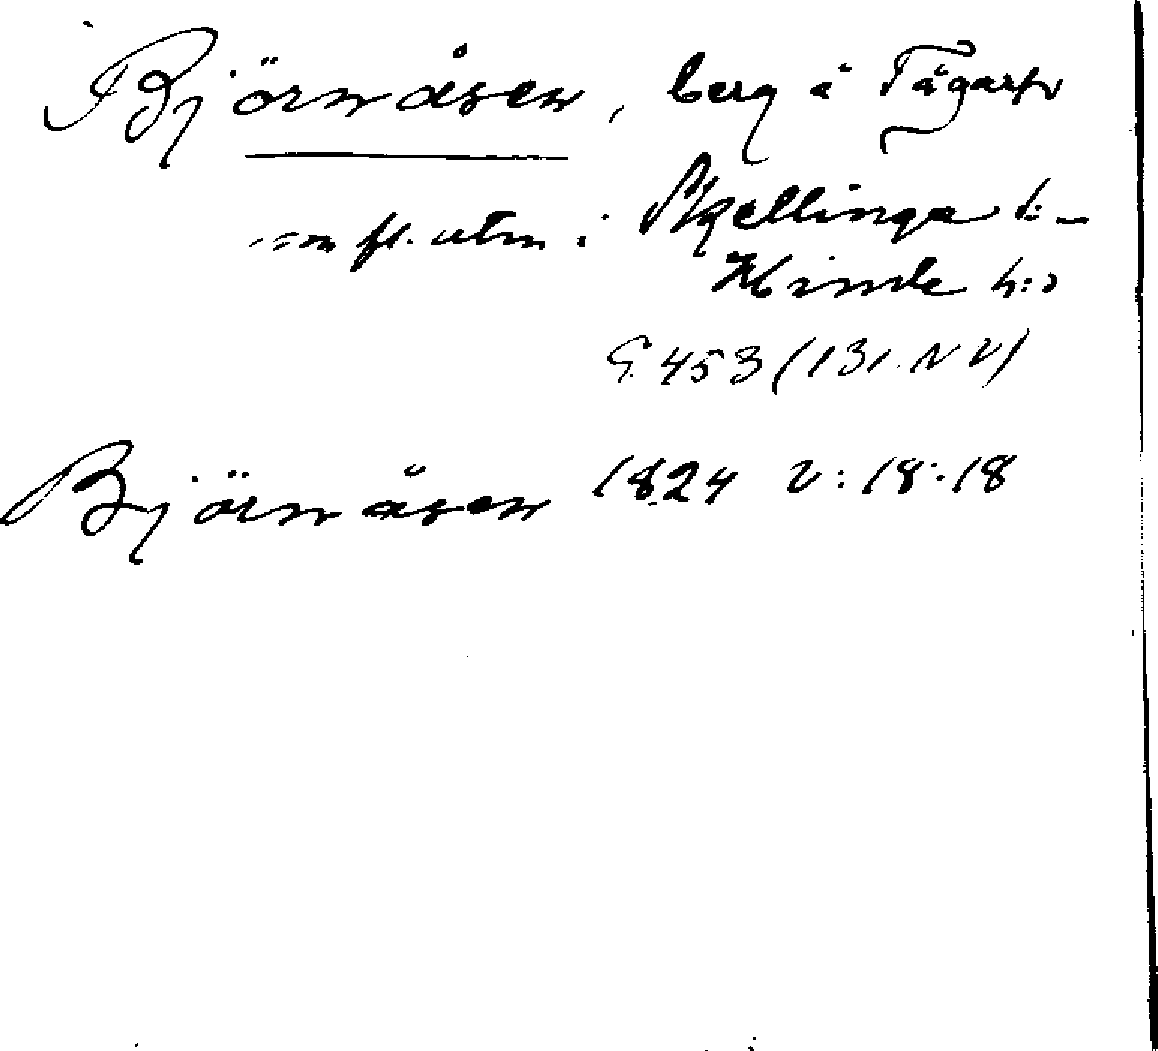 Björnåsen, berg å Tågarp
m fl. utm i Skällinge s:n
Himle h:d
G. 453 (131. N V)
Björnåsen 1824 V: 18:18